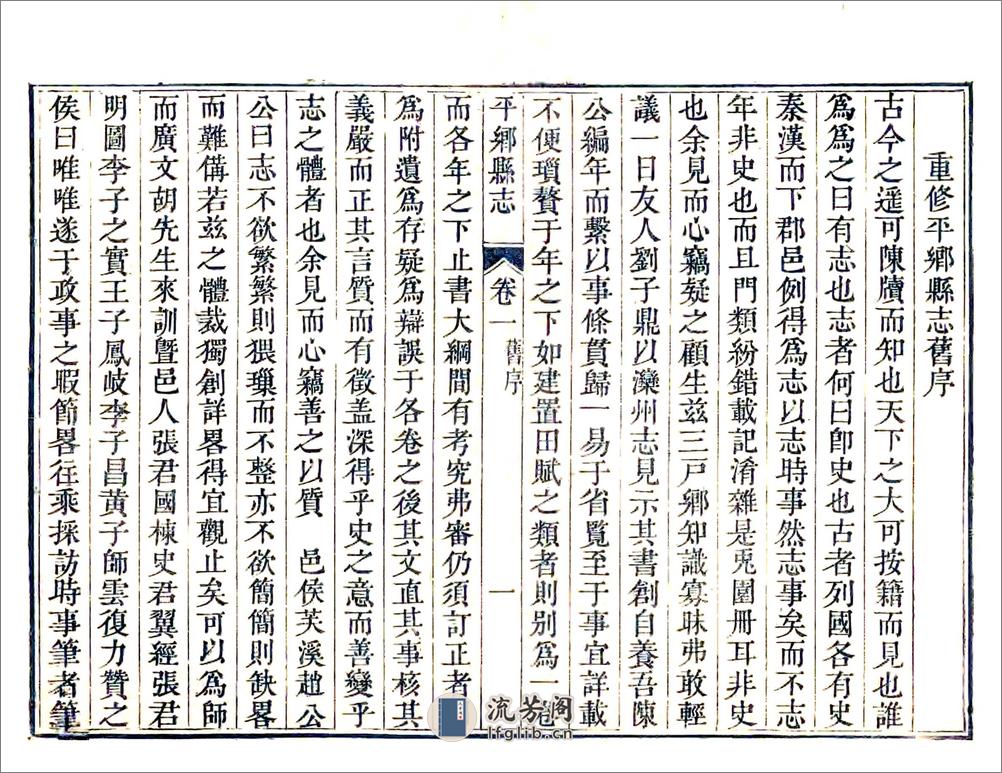 重修平鄉縣志舊序
古今之遥可陳牘而知也天下之大可按籍而見也誰
爲爲之曰有志也志者何曰卽史也古者列國各有史
秦漢而下郡邑例得爲志以志時事然志事矣而不志
年非史也而且門類紛錯載記淆雜是兎園册耳非史
也余見而心竊疑之顧生兹三戸鄉知識寡昧弗敢輕
議一日友人劉子鼎以灤州志見示其書創自養吾陳
公編年而繫以事條貫歸一易于省覧至于事宜詳載
不便瑣贅于年之下如建置田賦之類者則别為一卷
平鄉縣志 卷一 舊序 一
而各年之下止書大綱間有考究弗審仍須訂正者
爲附遺爲存疑爲辯誤于各卷之後其文直其事核其
義嚴而正其言質而有徵盖深得乎史之意而善變乎
志之體者也余見而心竊善之以質 邑侯芙溪趙公
公曰志不欲繁繁則猥璅而不整亦不欲簡簡則缺畧
而難備若兹之體裁獨創詳畧得宜觀止矣可以為師
而廣文胡先生來訓曁邑人張君國棟史君翼經張君
明圖李子之實王子鳳岐李子昌黄子師雲復力贊之
侯曰唯唯遂于政事之暇節畧往乘採訪時事筆者筆
流芳阁
lfglib.cn